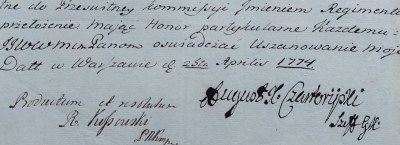 ne do Prześwitney kommissyi Imieniem Regimentu
przełożenie mając Honor partykularne Każdemu
JWWmm Panom oświadczać Uszanowanie moje
Datt w Warszawie d 25ta Aprilis 1774
Productum et
R.
August X Czartoryski